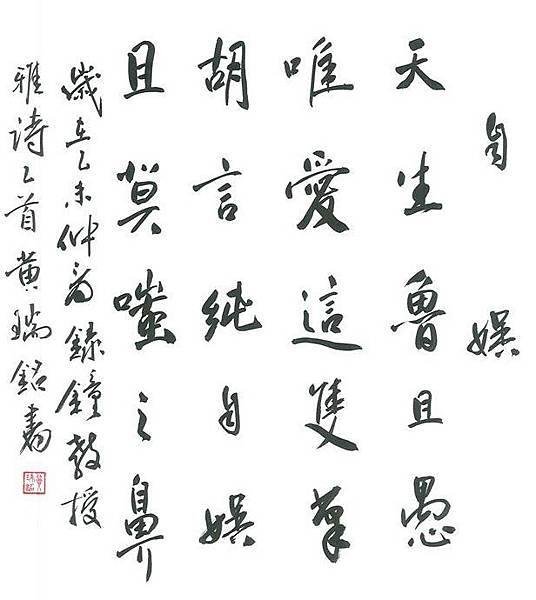 自娛
天生魯且愚
唯愛這隻筆
胡言純自娛
且莫嗤之鼻
歲在乙未仲夏錄鐘教授
雅詩乙首黃瑞銘書